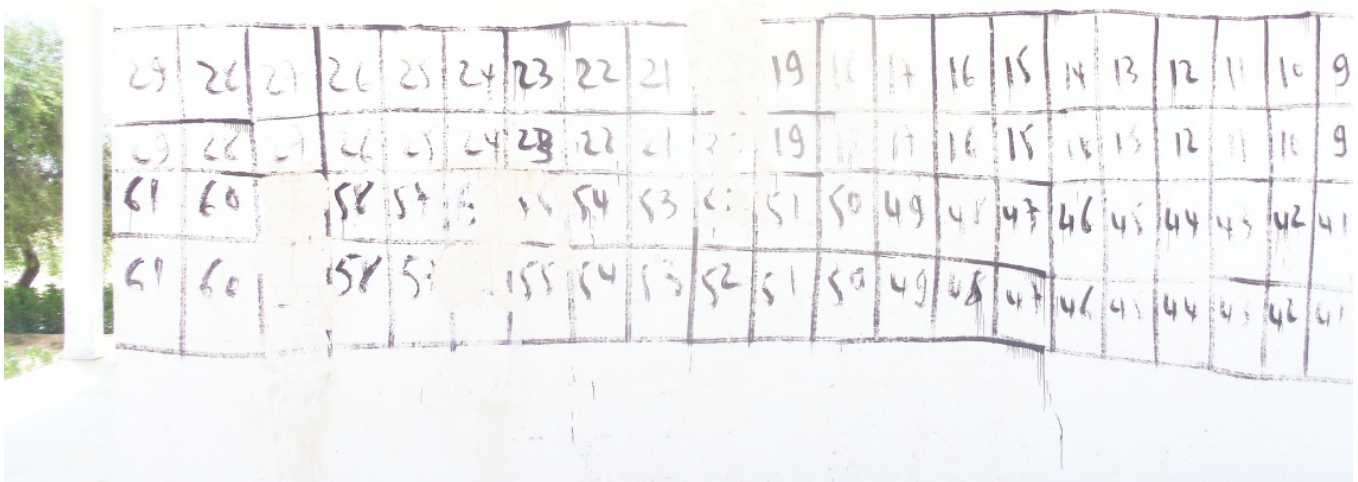 29 28 27 26 25 24 23 22 21 19 18 17 16 15 14 13 12 11 10 9
29 28 27 26 25 24 23 22 21 19 18 17 16 15 14 13 12 11 10 9
61 60 58 57 54 53 51 50 49 48 47 46 45 44 43 42 41
61 60 58 57 55 54 53 52 51 50 49 48 47 46 45 44 43 42 41